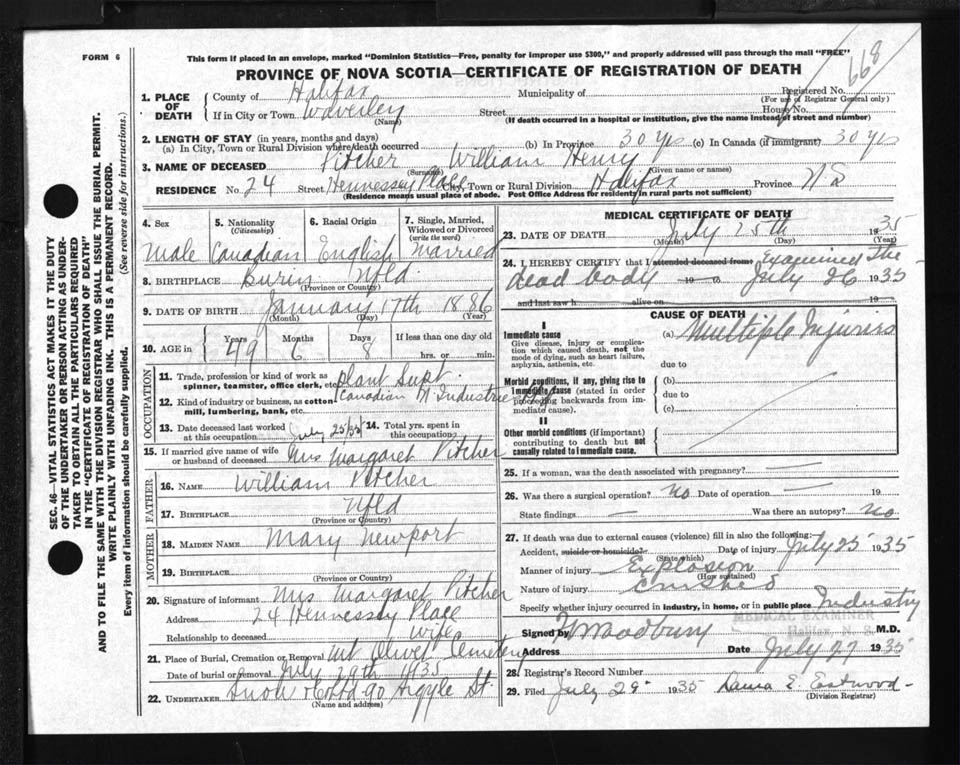 668
FORM 6
This form if placed in an envelope, marked "Dominion Statistics—Free, penalty for improper use $300," and properly addressed will pass through the mail "FREE"
PROVINCE OF NOVA SCOTIA—CERTIFICATE OF REGISTRATION OF DEATH
SEC. 46—VITAL STATISTICS ACT MAKES IT THE DUTY
OF THE UNDERTAKER OR PERSON ACTING AS UNDER-
TAKER TO OBTAIN ALL THE PARTICULARS REQUIRED
IN THE "CERTIFICATE OF REGISTRATION OF DEATH"
AND TO FILE THE SAME WITH THE DIVISION REGISTRAR WHO SHALL ISSUE THE BURIAL PERMIT.
WRITE PLAINLY WITH UNFADING INK. THIS IS A PERMANENT RECORD.
Every item of information should be carefully supplied. (See reverse side for instructions.)
1. PLACE OF DEATH County of Halifax Municipality of Registered No.
(For use of Registrar General only)
If in City or Town Waverley Street House No.
(Name) (If death occurred in a hospital or institution, give the name instead of street and number)
2. LENGTH OF STAY (in years, months and days)
(a) In City, Town or Rural Division where death occurred (b) In Province 30 yrs (c) In Canada (if immigrant) 30 yrs
3. NAME OF DECEASED Pitcher William Henry
(Surname) (Given name or names)
RESIDENCE No. 24 Street Hennessey Place City, Town or Rural Division Halifax Province N S
(Residence means usual place of abode. Post Office Address for residents in rural parts not sufficient)
4. Sex 5. Nationality (Citizenship) 6. Racial Origin 7. Single, Married, Widowed or Divorced (write the word)
Male Canadian English Married
8. BIRTHPLACE Burin Nfld
(Province or Country)
9. DATE OF BIRTH January 17th 1886
(Month) (Day) (Year)
10. AGE in Years Months Days If less than one day old
49 6 8 hrs. or min.
OCCUPATION
11. Trade, profession or kind of work as spinner, teamster, office clerk, etc. Plant Supt.
12. Kind of industry or business, as cotton mill, lumbering, bank, etc. Canadian Industries
13. Date deceased last worked at this occupation July 25/35 14. Total yrs. spent in this occupation
15. If married give name of wife or husband of deceased Mrs Margaret Pitcher
FATHER
16. NAME William Pitcher
17. BIRTHPLACE Nfld
(Province or Country)
MOTHER
18. MAIDEN NAME Mary Newport
19. BIRTHPLACE
(Province or Country)
20. Signature of informant Mrs Margaret Pitcher
Address 24 Hennessey Place
Relationship to deceased wife
21. Place of Burial, Cremation or Removal Mt Olivet Cemetery
Date of burial or removal July 29th 1935
22. UNDERTAKER Snow & Co Ltd 90 Argyle St.
(Name and address)
MEDICAL CERTIFICATE OF DEATH
23. DATE OF DEATH July 25th 1935
(Month) (Day) (Year)
24. I HEREBY CERTIFY that I attended deceased from: Examined The
dead body 19 to July 26 1935
and last saw h alive on 19
CAUSE OF DEATH
I
Immediate cause
Give disease, injury or complication which caused death, not the mode of dying, such as heart failure, asphyxia, asthenia, etc.
(a) Multiple Injuries
due to
Morbid conditions, if any, giving rise to immediate cause (stated in order proceeding backwards from immediate cause).
(b)
due to
(c)
II
Other morbid conditions (if important) contributing to death but not causally related to immediate cause.
25. If a woman, was the death associated with pregnancy? —
26. Was there a surgical operation? no Date of operation — 19
State findings — Was there an autopsy? no
27. If death was due to external causes (violence) fill in also the following:
Accident, suicide or homicide? Date of injury July 25 1935
(State which)
Manner of injury Explosion
(How sustained)
Nature of injury Crushed
Specify whether injury occurred in industry, in home, or in public place Industry
MEDICAL EXAMINER
Halifax, N. S.
Signed by M.D.
Address Date July 27 1935
28. Registrar's Record Number
29. Filed July 29 1935 E. Eastwood
(Division Registrar)